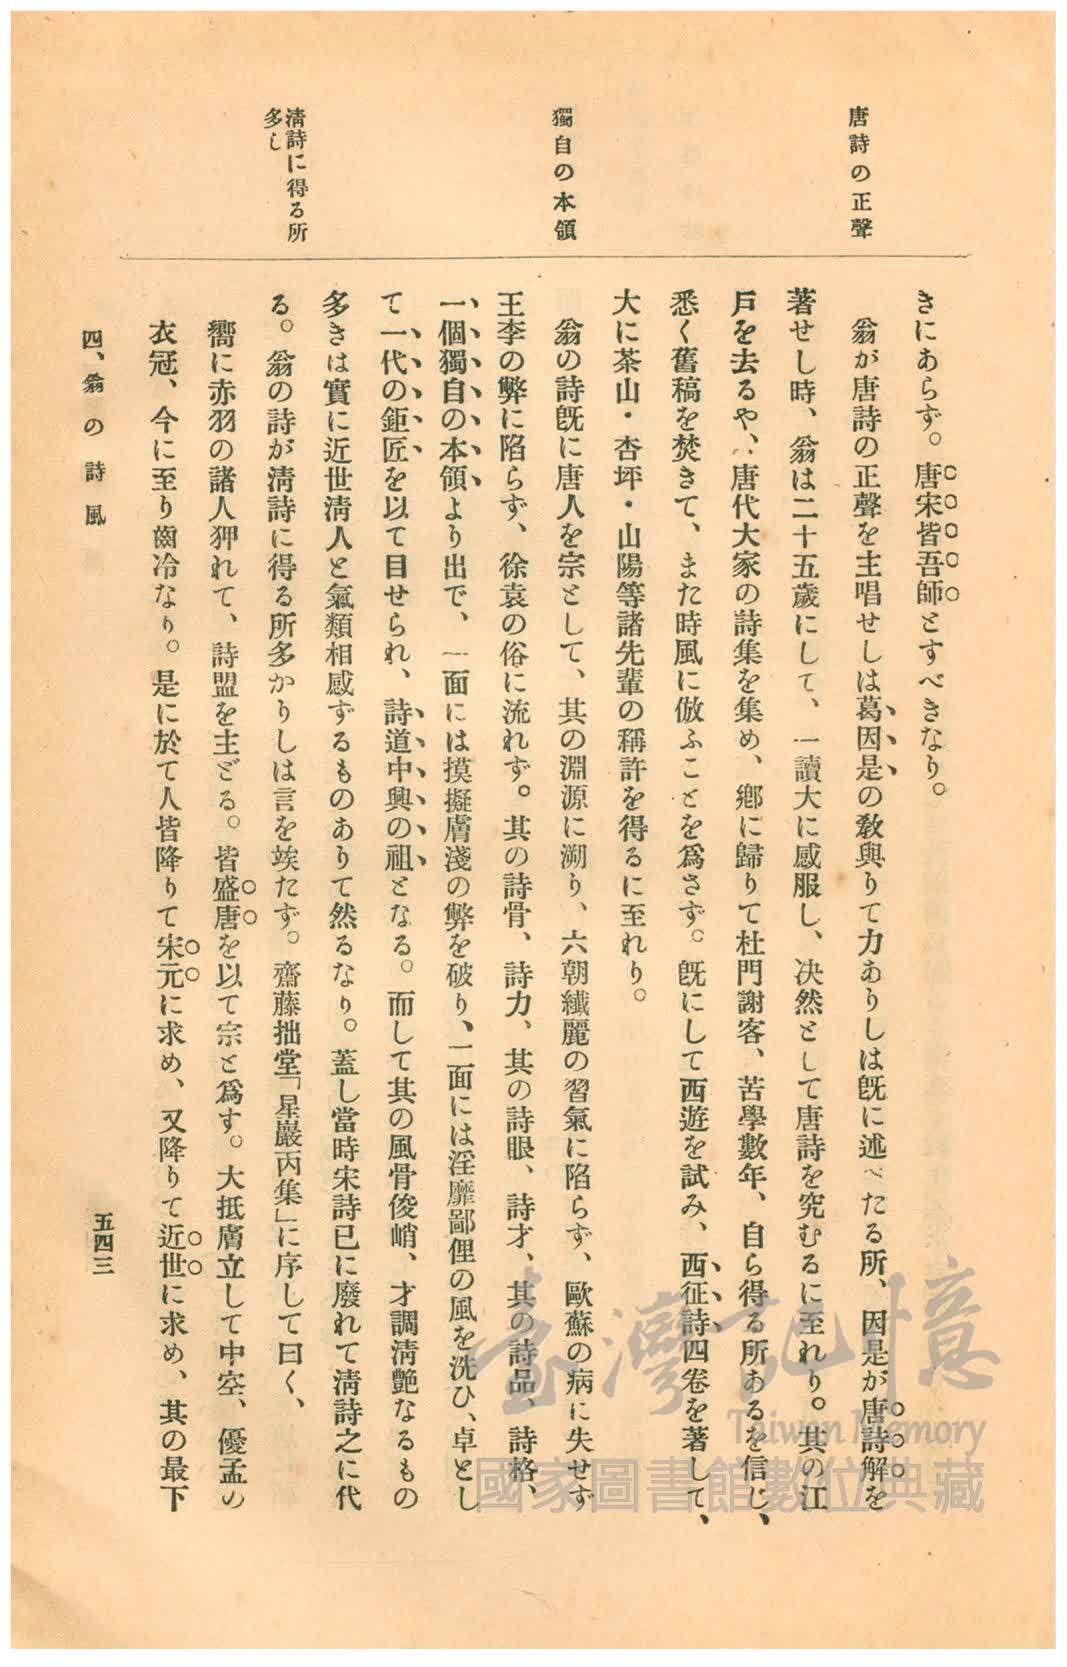 唐詩の正聲
獨自の本領
淸詩に得る所
多し
きにあらず。唐宋皆吾師とすべきなり。
翁が唐詩の正聲を主唱せしは葛因是の敎與りて力ありしは旣に述べたる所、因是が唐詩解を
著せし時、翁は二十五歲にして、一讀大に感服し、決然として唐詩を究むるに至れり。其の江
戶を去るや、唐代大家の詩集を集め、鄕に歸りて杜門謝客、苦學數年、自ら得る所あるを信じ、
悉く舊稿を焚きて、また時風に倣ふことを爲さず。旣にして西遊を試み、西征詩四卷を著して、
大に茶山・杏坪・山陽等諸先輩の稱許を得るに至れり。
翁の詩旣に唐人を宗として、其の淵源に溯り、六朝纎麗の習氣に陷らず、歐蘇の病に失せず
王李の弊に陷らず、徐袁の俗に流れず。其の詩骨、詩力、其の詩眼、詩才、其の詩品、詩格、
一個獨自の本領より出で、一面には摸擬膚淺の弊を破り、一面には淫靡鄙俚の風を洗ひ、卓とし
て一代の鉅匠を以て目せられ、詩道中興の祖となる。而して其の風骨俊峭、才調淸艶なるもの
多きは實に近世淸人と氣類相感ずるものありて然るなり。蓋し當時宋詩已に廢れて淸詩之に代
る。翁の詩が淸詩に得る所多かりしは言を竢たず。齋藤拙堂「星巖丙集」に序して曰く、
嚮に赤羽の諸人狎れて、詩盟を主どる。皆盛唐を以て宗と爲す。大抵膚立して中空、優孟の
衣冠、今に至り齒冷なり。是に於て人皆降りて宋元に求め、又降りて近世に求め、其の最下
四、翁の詩風
五四三
臺灣記憶
Taiwan Memory
國家圖書館數位典藏